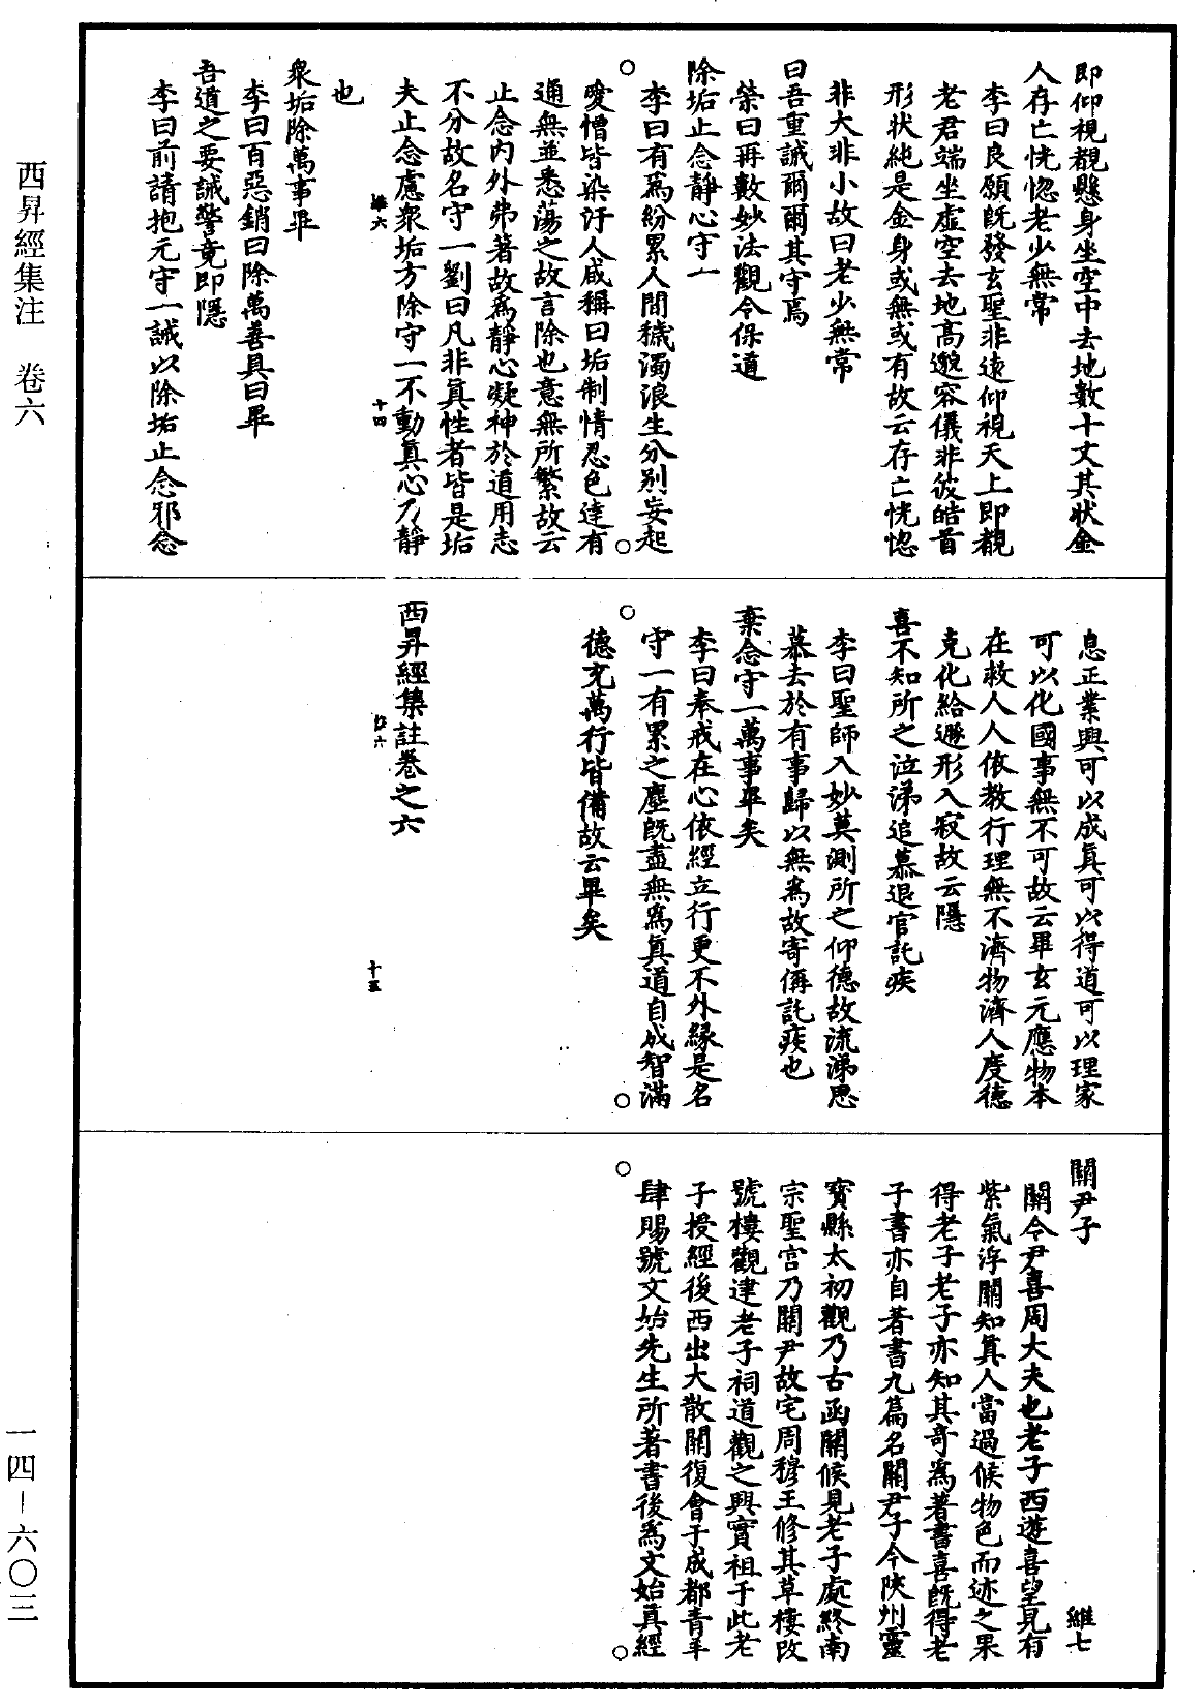 即仰視觀懸身坐空中去地數十丈其狀金
人存亡恍惚老少無常
李曰良願既發玄聖非遠仰視天上即覩
老君端坐虛空去地高邈容儀非彼皓首
形狀純是金身或無或有故云存亡恍惚
非大非小故曰老少無常
曰吾重誡爾爾其守焉
榮曰再敷妙法觀令保道
除垢止念靜心守一
李曰有為紛累人間穢濁浪生分別妄起
愛憎皆染汙人咸稱曰垢制情忍色達有
通無並悉蕩之故言除也意無所繁故云
止念內外弗著故為靜心凝神於道用志
不分故名守一劉曰凡非真性者皆是垢
夫止念慮衆垢方除守一不動真心乃靜
維六 十四
也
衆垢除萬事畢
李曰百惡銷曰除萬善具曰畢
吾道之要誡警竟即隱
李曰前請抱元守一誡以除垢止念邪念
息正業興可以成真可以得道可以理家
可以化國事無不可故云畢玄元應物本
在救人人依教行理無不濟物濟人度德
克化給遯形入寂故云隱
喜不知所之泣涕追慕退官託疾
李曰聖師入妙莫測所之仰德故流涕思
慕去於有事歸以無為故寄侢託疾也
棄念守一萬事畢矣
李曰奉戒在心依經立行更不外緣是名
守一有累之塵既盡無為真道自成智滿
德充萬行皆備故云畢矣
西昇經集註卷之六
十五
關尹子
維七
關令尹喜周大夫也老子西遊喜望見有
紫氣浮關知真人當過候物色而迹之果
得老子老子亦知其奇為著書喜既得老
子書亦自著書九篇名關尹子今陝州靈
寶縣太初觀乃古函關候見老子處終南
宗聖宮乃關尹故宅周穆王修其草樓改
號樓觀建老子祠道觀之興實祖于此老
子授經後西出大散關復會于成都青羊
肆賜號文始先生所著書後為文始真經
西昇經集注 卷六
一四—六〇三